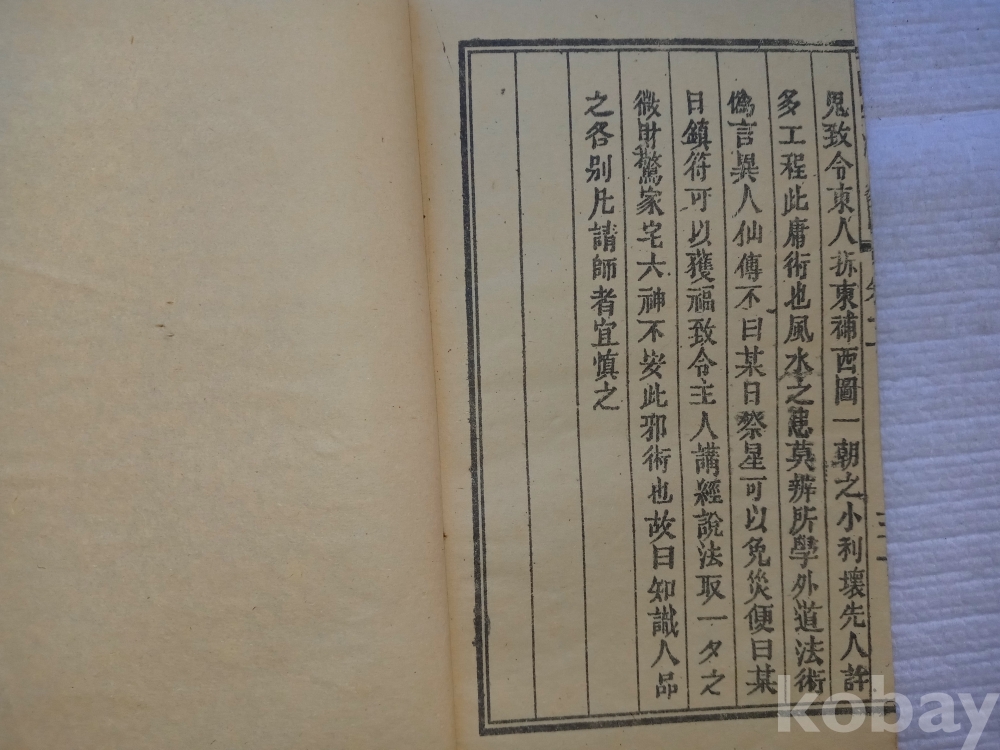 鬼致令東人拆東補西圖一朝之小利壞先人許
多工程此庸術也風水之患莫辨所學外道法術
偽言異人仙傳不曰某日祭星可以免災便曰某
日鎮符可以獲福致令主人講經說法取一夕之
微財驚家宅六神不安此邪術也故曰知識人品
之各别凡請師者宜慎之
kobay